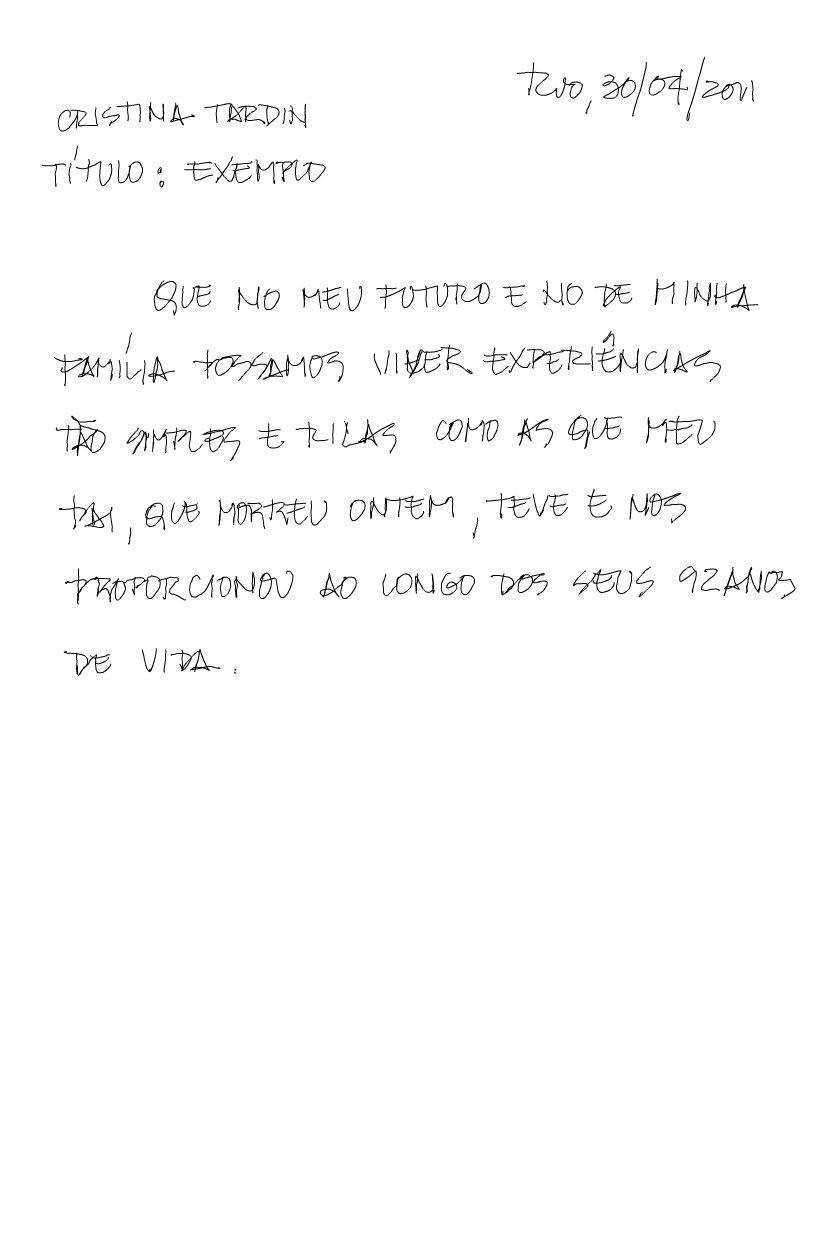 Rio, 30/04/2011
CRISTINA TARDIN
TÍTULO: EXEMPLO
QUE NO MEU FUTURO E NO DE MINHA
FAMÍLIA POSSAMOS VIVER EXPERIÊNCIAS
TÃO SIMPLES E RICAS COMO AS QUE MEU
PAI, QUE MORREU ONTEM, TEVE E NOS
PROPORCIONOU AO LONGO DOS SEUS 92 ANOS
DE VIDA.